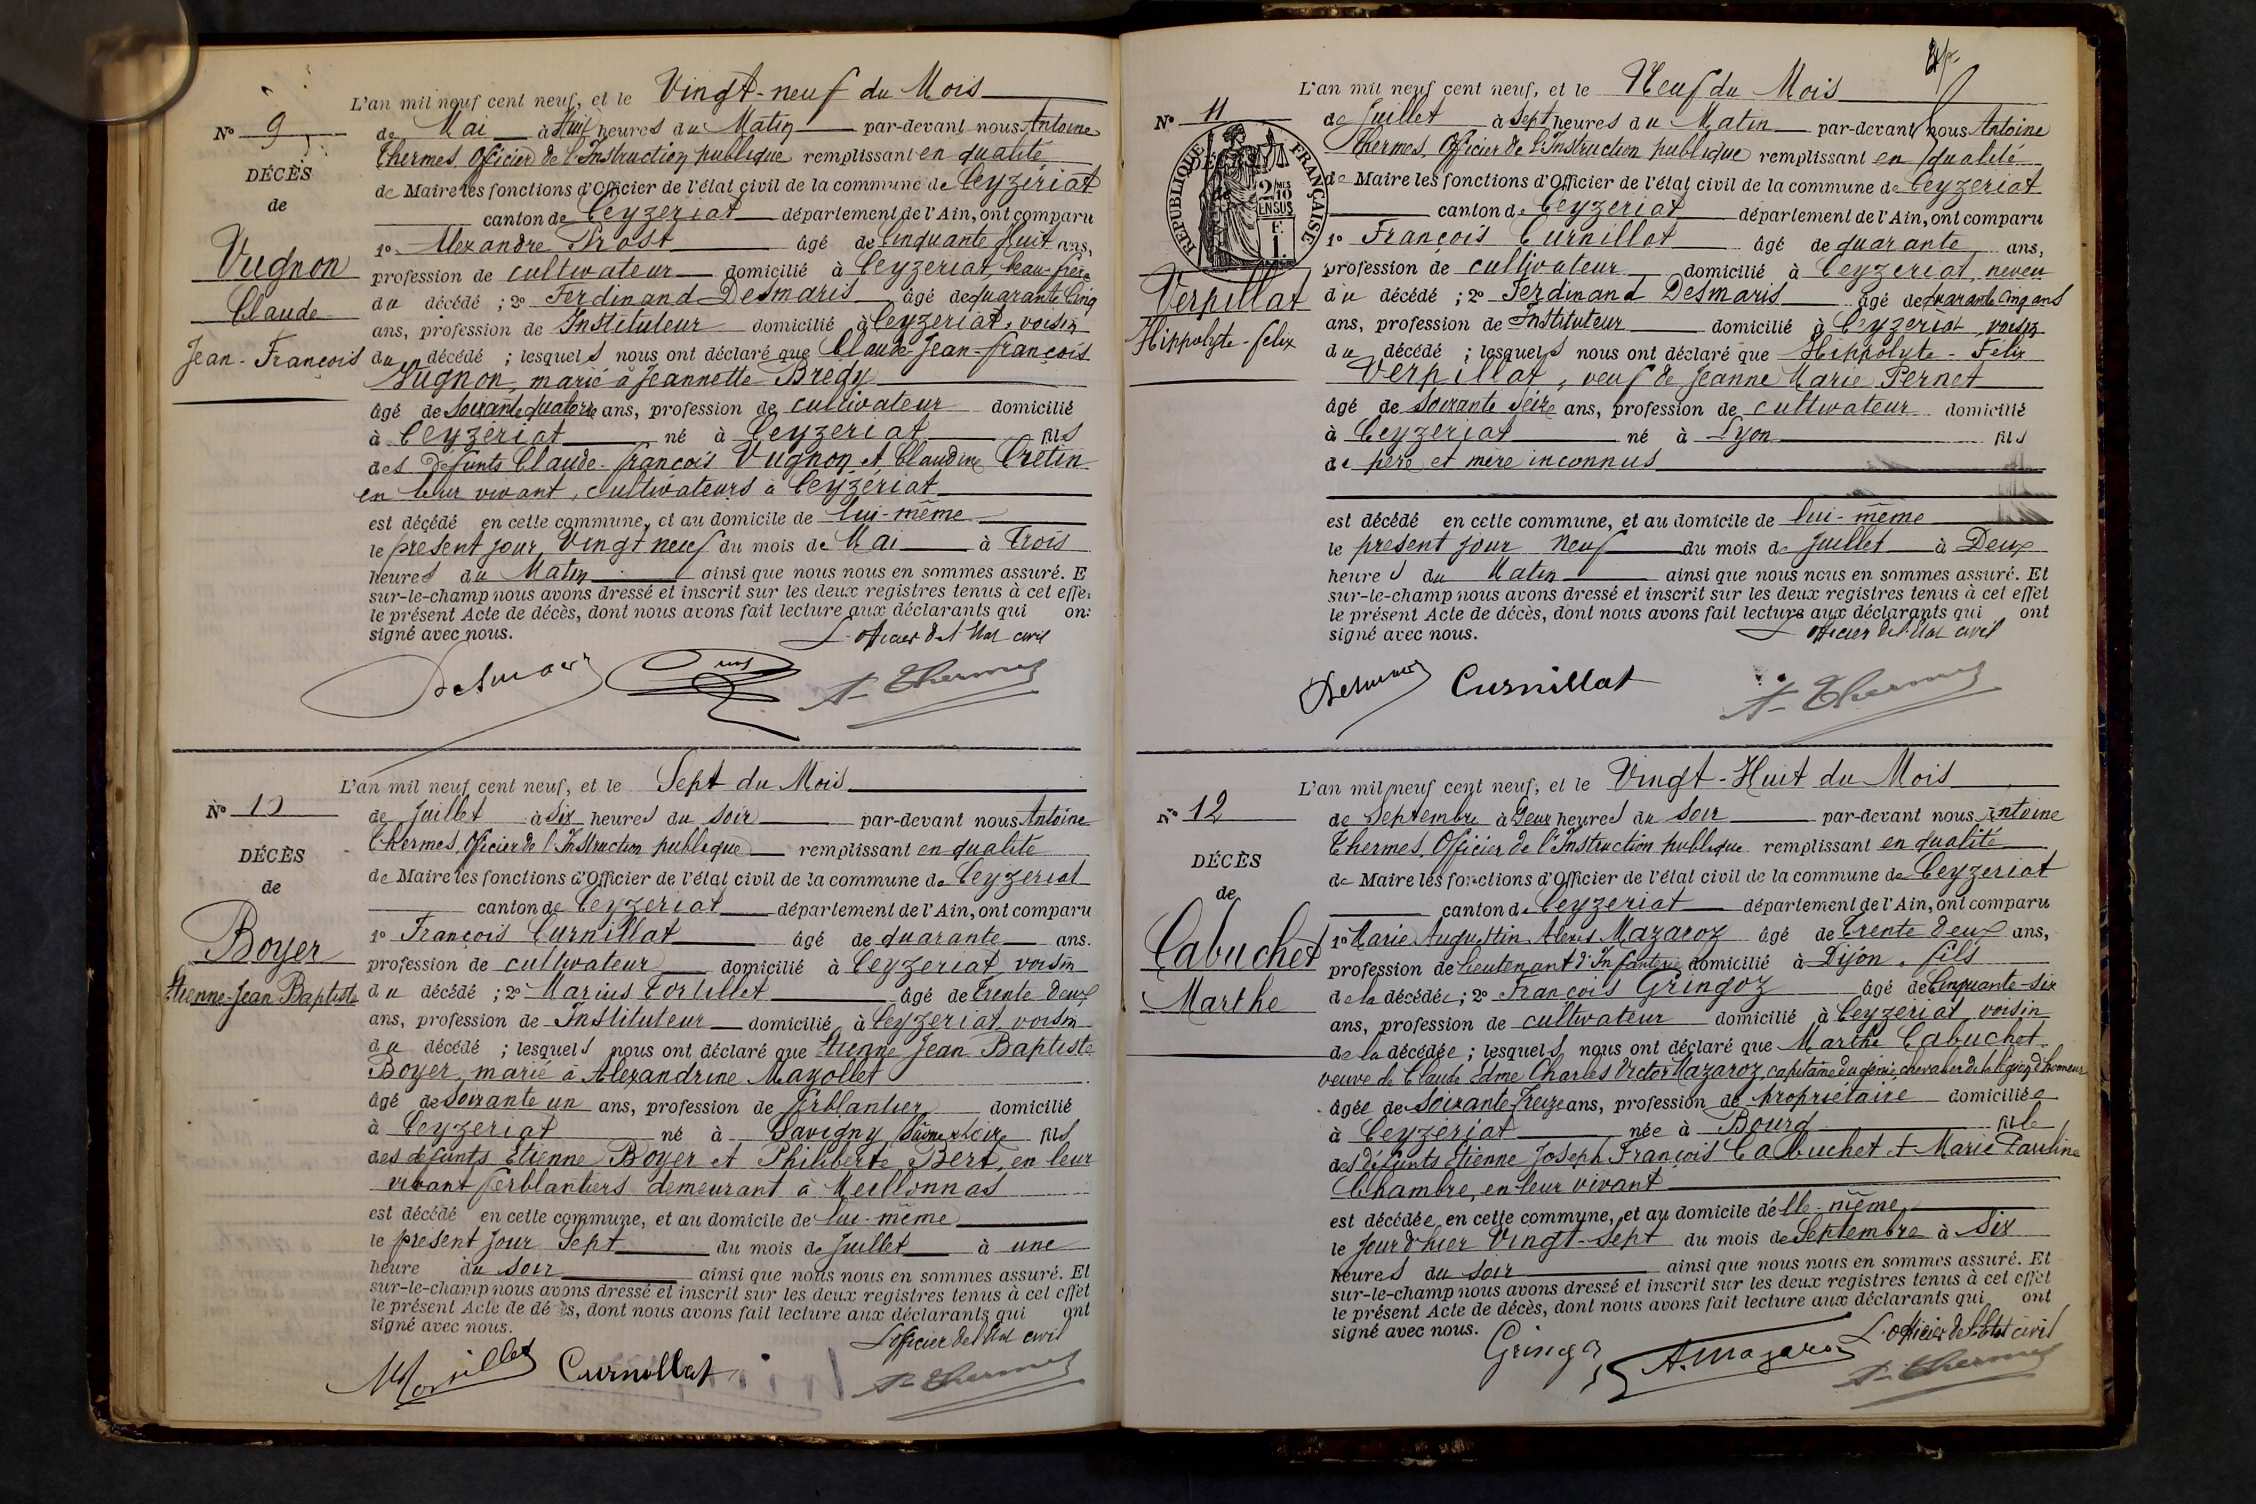 L'an mil neuf cent neuf, et le Vingt-neuf du Mois
N° 9
de Mai à Huit heures du Matin par-devant nous Antoine
Thermes, Officier de l'Instruction publique remplissant en qualité
DÉCÈS
de Maire les fonctions d'Officier de l'état civil de la commune de Ceyzériat
de
canton de Ceyzeriat département de l'Ain, ont comparu
1° Alexandre Prost âgé de Cinquante Huit ans,
Vugnon
profession de cultivateur domicilié à Ceyzeriat, beau-frère
Claude
du décédé ; 2° Ferdinand Desmaris âgé de quarante Cinq
ans, profession de Instituteur domicilié à Ceyzeriat, voisin
Jean-François
du décédé ; lesquels nous ont déclaré que Claude Jean-françois
Vugnon, marié à Jeannette Bredy
âgé de Soixante quatorze ans, profession de cultivateur domicilié
à Ceyzériat né à Ceyzeriat fils
des defunts Claude-françois Vugnon et Claudine Cretin
en leur vivant, cultivateurs à Ceyzériat
est décédé en cette commune, et au domicile de lui-même
le présent jour, Vingt neuf du mois de Mai à Trois
heures du Matin ainsi que nous nous en sommes assuré. E
sur-le-champ nous avons dressé et inscrit sur les deux registres tenus à cet effe
le présent Acte de décès, dont nous avons fait lecture aux déclarants qui on
signé avec nous.
L'officier de l'Etat civil
Desmaris A. Thermes
L'an mil neuf cent neuf, et le Sept du Mois
N° 10
de Juillet à Six heures du soir par-devant nous Antoine
Thermes, Officier de l'Instruction publique remplissant en qualité
DÉCÈS
de Maire les fonctions d'Officier de l'état civil de la commune de Ceyzeriat
de
canton de Ceyzeriat département de l'Ain, ont comparu
1° François Curnillat âgé de quarante ans.
Boyer
profession de cultivateur domicilié à Ceyzeriat, voisin
Etienne-Jean Baptiste
du décédé ; 2° Marius Tortillet âgé de Trente deux
ans, profession de Instituteur domicilié à Ceyzeriat, voisin
du décédé ; lesquels nous ont déclaré que Etienne Jean Baptiste
Boyer, marié à Alexandrine Mazollet
âgé de soixante un ans, profession de ferblantier domicilié
à Ceyzeriat né à Savigny, Saône et Loire fils
des défunts Etienne Boyer et Philiberte Bert, en leur
vivant ferblantiers demeurant à Meillonnas
est décédé en cette commune, et au domicile de lui-même
le présent Jour Sept du mois de Juillet à une
heure du soir ainsi que nous nous en sommes assuré. Et
sur-le-champ nous avons dressé et inscrit sur les deux registres tenus à cet effet
le présent Acte de décès, dont nous avons fait lecture aux déclarants qui ont
signé avec nous.
L'officier de l'Etat civil
M Tortillet Curnillat A. Thermes
L'an mil neuf cent neuf, et le Neuf du Mois
N° 11
de Juillet à Sept heures du Matin par-devant nous Antoine
Thermes, Officier de l'Instruction publique remplissant en qualité
RÉPUBLIQUE FRANÇAISE
2/10 MES EN SUS
F. 1
de Maire les fonctions d'Officier de l'état civil de la commune de Ceyzeriat
canton de Ceyzeriat département de l'Ain, ont comparu
1° François Curnillat âgé de quarante ans,
profession de cultivateur domicilié à Ceyzeriat, neveu
Verpillat
du décédé ; 2° Ferdinand Desmaris âgé de quarante cinq ans
Hippolyte-felix
ans, profession de Instituteur domicilié à Ceyzeriat, voisin
du décédé ; lesquels nous ont déclaré que Hippolyte-Félix
Verpillat, veuf de Jeanne Marie Pernet
âgé de soixante seize ans, profession de cultivateur domicilié
à Ceyzeriat né à Lyon fils
de père et mère inconnus
est décédé en cette commune, et au domicile de lui-même
le présent jour neuf du mois de Juillet à Deux
heures du Matin ainsi que nous nous en sommes assuré. Et
sur-le-champ nous avons dressé et inscrit sur les deux registres tenus à cet effet
le présent Acte de décès, dont nous avons fait lecture aux déclarants qui ont
signé avec nous.
L'officier de l'Etat civil
Desmaris Curnillat A. Thermes
L'an mil neuf cent neuf, et le Vingt-Huit du Mois
N° 12
de Septembre à Deux heures du soir par-devant nous Antoine
Thermes, Officier de l'Instruction publique remplissant en qualité
DÉCÈS
de Maire les fonctions d'Officier de l'état civil de la commune de Ceyzeriat
de
canton de Ceyzeriat département de l'Ain, ont comparu
1° Marie Augustin Alexis Mazaroz âgé de Trente deux ans,
Cabuchet
profession de lieutenant d'Infanterie domicilié à Dijon, fils
Marthe
de la décédée ; 2° François Gringoz âgé de Cinquante-six
ans, profession de cultivateur domicilié à Ceyzeriat, voisin
de la décédée ; lesquels nous ont déclaré que Marthe Cabuchet
veuve de Claude Edme Charles Victor Mazaroz, capitaine du génie, chevalier de la légion d'honneur
âgée de soixante-treize ans, profession de propriétaire domiciliée
à Ceyzériat née à Bourg fille
des défunts Etienne Joseph François Cabuchet et Marie Pauline
Chambre, en leur vivant
est décédée en cette commune, et au domicile d'elle-même
le Jour d'hier Vingt-Sept du mois de Septembre à Six
heures du soir ainsi que nous nous en sommes assuré. Et
sur-le-champ nous avons dressé et inscrit sur les deux registres tenus à cet effet
le présent Acte de décès, dont nous avons fait lecture aux déclarants qui ont
signé avec nous.
L'officier de l'Etat civil
Gringoz A. Mazaroz A. Thermes